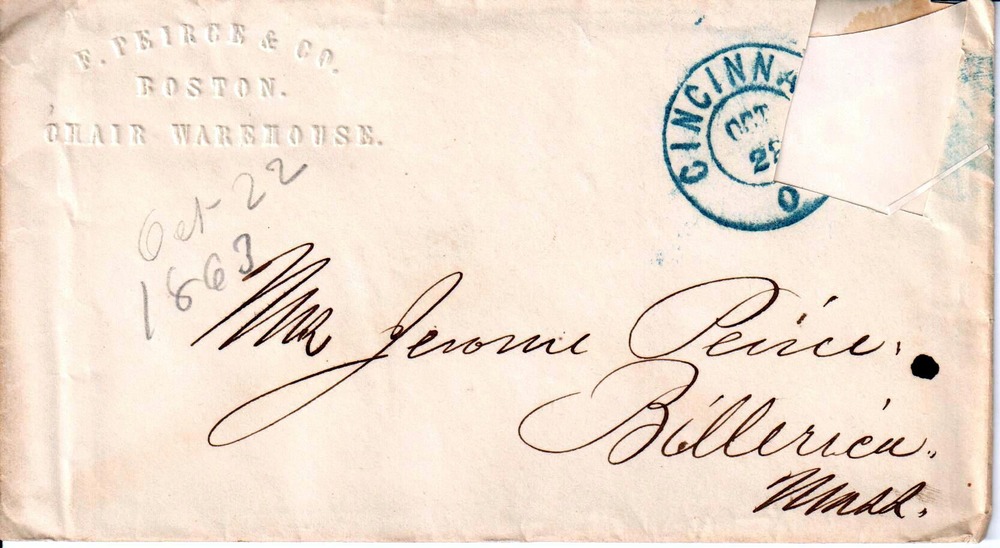 F. PEIRCE & CO.
BOSTON.
CHAIR WAREHOUSE.
CINCINNA
OCT
28
O
Oct 22
1863
Mrs Jerome Peirce.
Billerica.
Mass.